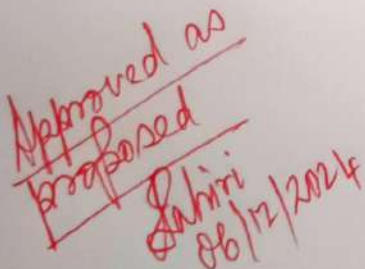 Approved as
proposed
Lahiri
06/12/2024